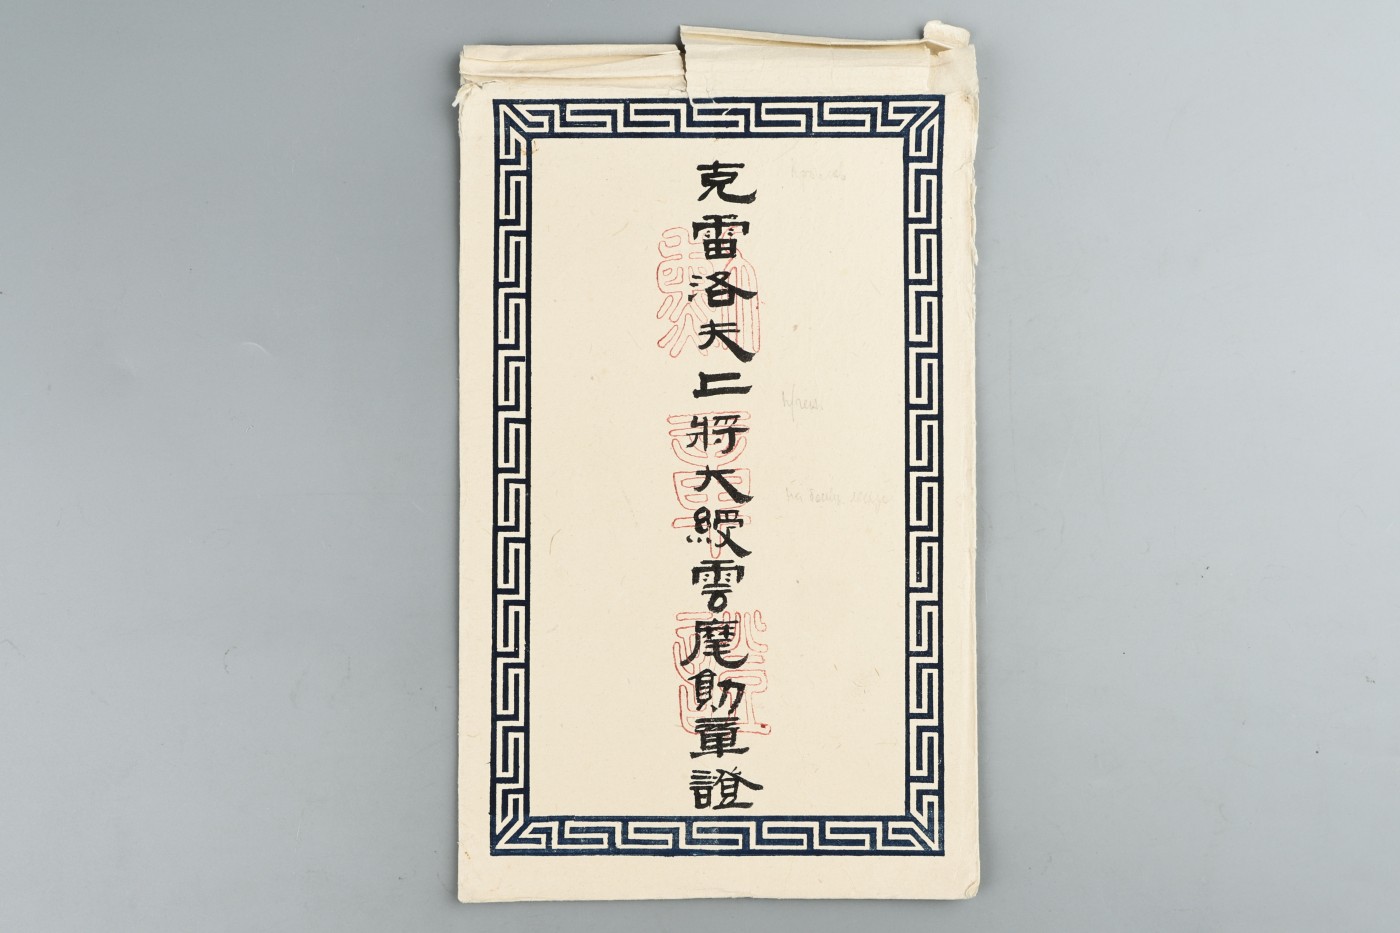 克雷洛夫上將大綬雲麾勛章證
勳章證